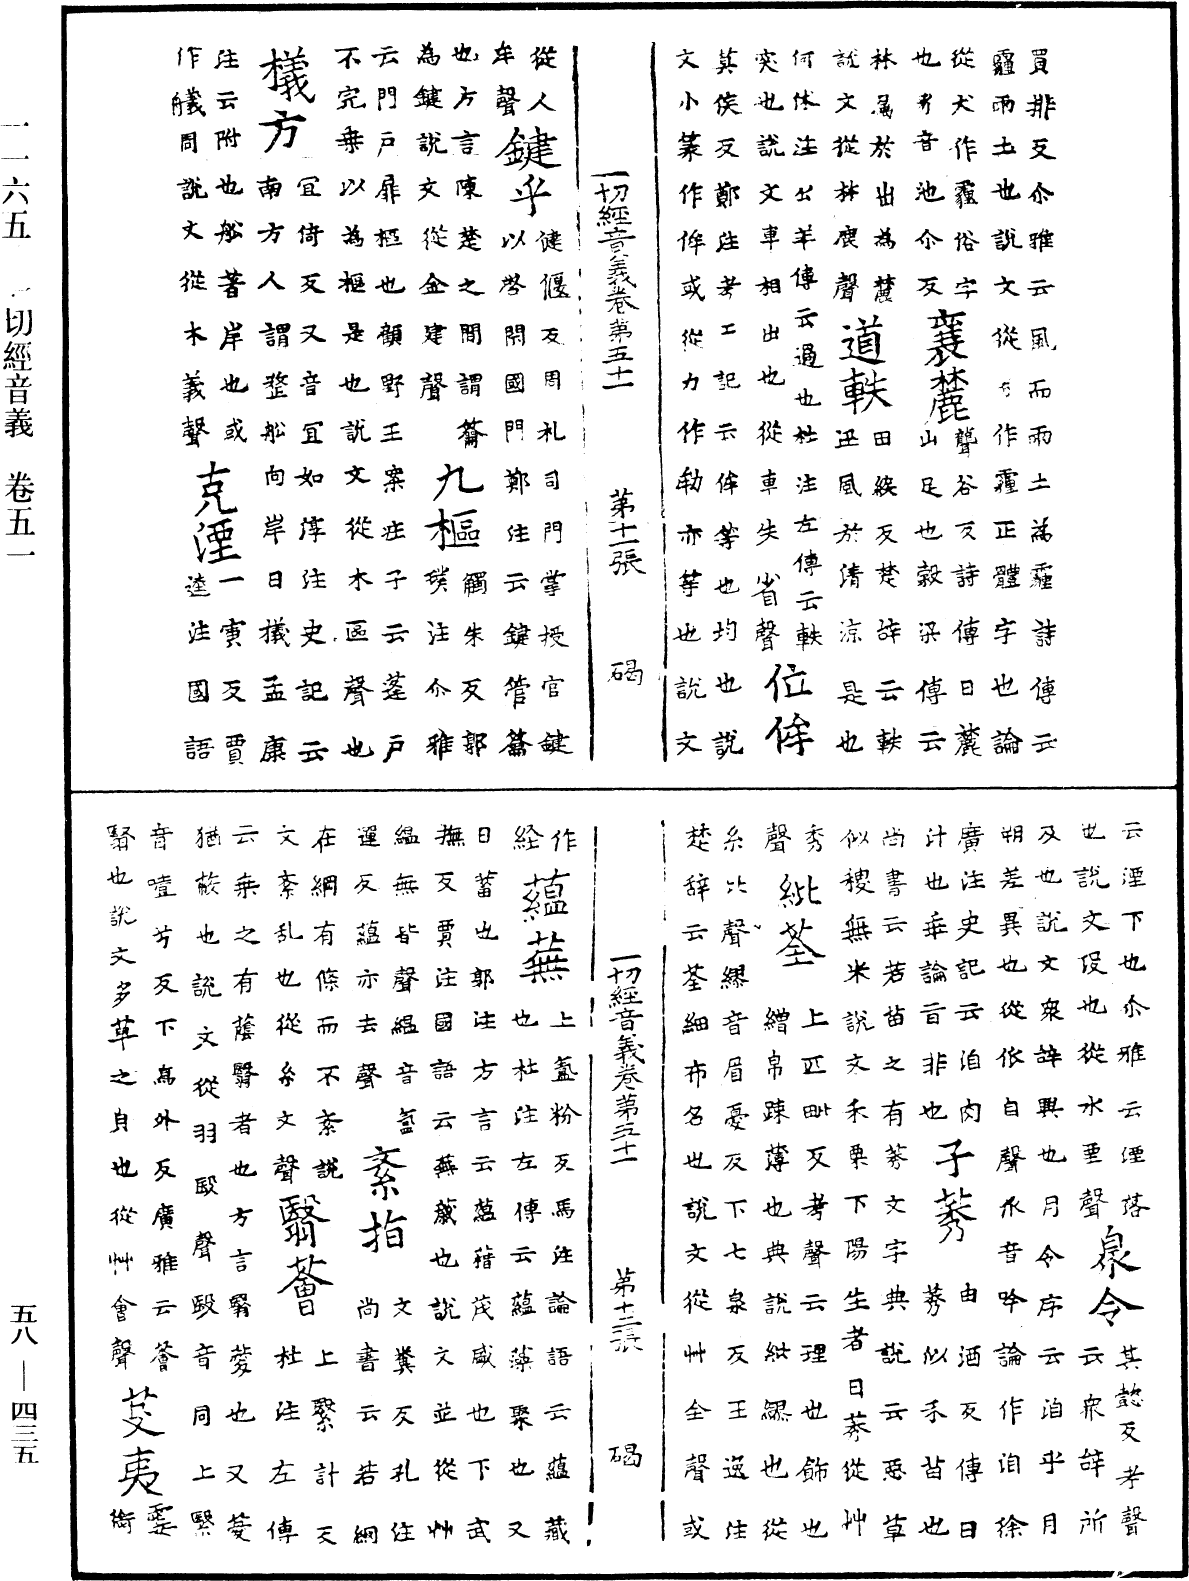 買排反尒雅云風而雨土為霾詩傳云
霾雨土也說文從作霾正體字也論
從犬作霾俗字聾谷反詩傳曰麓
也考音池尒反襄麓山足也穀梁傳云
林属於出為麓田綫反楚辞云軼
說文從林鹿聲道軼迅風於清涼是也
何休注公羊傳云過也杜注左傳云軼
突也說文車相出也從車失省聲位侔
莫侯反鄭注考工記云侔等也均也說
文小篆作侔或從力作劺亦等也說文
一切經音義卷第五十一 第十一張 碣
從人
牟聲鍵乎健偃反周礼司門掌授官鍵
以啓閉國門鄭注云鍵管籥
也方言陳楚之間謂籥九樞觸朱反郭
為鍵說文從金建聲璞注尒雅
云門戶扉樞也顧野王案莊子云蓬戶
不完桑以為樞是也說文從木區聲也
檥方冝倚反又音冝如淳注史記云
南方人謂整船向岸曰檥孟康
注云附也船著岸也或克湮一寅反賈
作艤同說文從木義聲逵注國語
云湮下也尒雅云湮落
也說文没也從水垔聲臮令其懿反考聲
云衆辞所
及也說文衆辞與也月令序云洎乎月
朔差異也從㐺自聲㐺音吟論作洎徐
廣注史記云洎肉子莠由酒反傳曰
汁也乖論旨非也莠似禾苗也
尚書云若苗之有莠文字典說云惡草
似稷無米說文禾粟下陽生者曰莠從艸
秀聲紕荃上匹毗反考聲云理也飾也
繒帛踈薄也典說紕繆也從
糸比聲繆音眉憂反下七泉反王逸注
楚辞云荃細布名也說文從艸全聲或
一切經音義卷第五十一 第十二張 碣
作
経蘊蕪上藴粉反馬注論語云蘊藏
也杜注左傳云蘊藻聚也又
曰蓄也郭注方言云蘊積茂盛也下武
撫反賈注國語云蕪薉也說文並從艸
緼無皆聲緼音紊指文糞反孔注
運反蘊亦去聲尚書云若網
在網有條而不紊說翳薈上緊計
文紊乱也從糸文聲杜注左傳
云乗之有蔭翳者也方言翳薆也又薆
猶蔽也說文從羽殹聲殹音同上緊
音噎兮反下烏外反廣雅云薈
翳也說文多草之皃也從艸會聲芟夷
一一六五 一切經音義 卷五一
五八—四三五